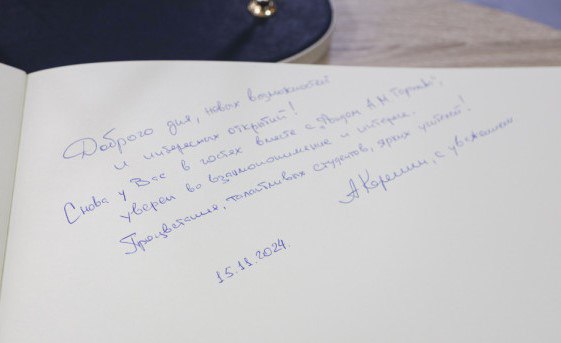 Доброго дня, новых возможностей
и интересных открытий!
Снова у Вас в гостях вместе с А.М.
уверен во взаимопонимание и интерес.
Процветания, талантливых студентов, ярких учителей!
с уважением
15.11.2024.